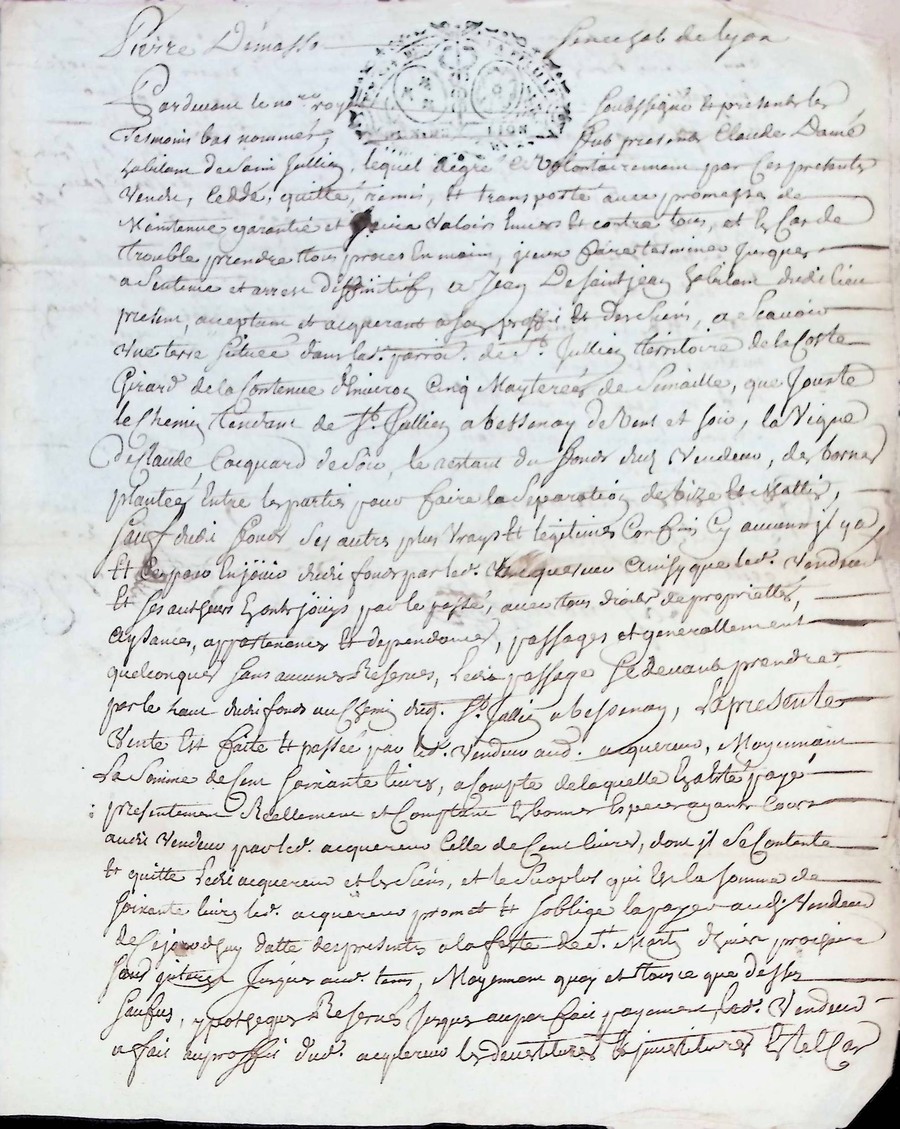 Pierre Démasso Senechal de Lyon
Pardevant le no.re royal soussigné et presents les
Tesmoins bas nommés, fut present Claude Damé
habitant de Saint Jullien, lequel de gré et volontairement par ces presentes
Vendu, ceddé, quitté, remis, et transporté avec promesse de
Maintenue garantie et faire valoir Envers et contre tous, et En Cas de
trouble prendre tous proces En main, y ceux faire terminer Jusques
a Sentence et arrest diffinitif, a Jean De saint jean habitant dudit lieu
present, acceptant et acquerant a son proffit et des siens, a Scavoir
Une terre Scituée dans lad. parroi. de St. Jullien territoire de la Coste
Girard de la Contenue d'Environ Cinq Mayterées de Semaille, que Jouxte
le Chemin tendant de St. Jullien a bessenay de Vent et soir, la Vigne
de Claude Cocquard de Soir, le restant du fonds dud. Vendeur, des bornes
plantées Entre les parties pour faire la Separation de bize et Mattin,
Sauf dudit fonds Ses autres plus Vrays et legitimes Confins Sy aucuns il y a
Et Ce pour En jouir dudit fonds par led. acquereur ainsy que led. Vendeur
Et Ses autheurs En ont jouys par le passé, avec tous droits de proprietés,
aysances, appartenances Et dependances, passages et generallement
quelconques Sans aucunes Reserves, Ledit passage Se devant prendre
par le haut dudit fonds au Chemin dud. St. Jullien a bessenay, La presente
Vente Est faite Et passée par led. Vendeur aud. acquereur, Moyennant
La Somme de Cent Soixante livres, a Compte de laquelle a Esté payé
presentement Reellement et Comptant En bonnes Especes ayants Cours
audit Vendeur par led. acquereur Celle de Cent livres, dont il Se Contente
Et quitte Ledit acquereur et les Siens, et le Surplus qui Est la Somme de
Soixante livres led. acquereur promet Et S'oblige la payer audit Vendeur
de Ce jourd'huy datte des presentes a la feste de St. Martin d'hiver prochaine
Sans interest Jusques aud. tems, Moyennant quoy et tout ce que dessus
Saufus, ypotheques Reserves Jusques au parfait payement, led. Vendeur
a fait au proffit dud. acquereur les devestitures Et investitures En tel Cas